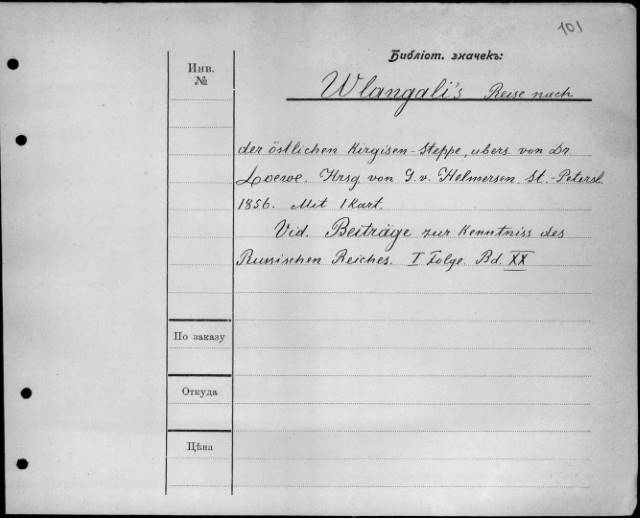 101
Библіот. значекъ:
Инв.
№
Wlangali's Reise nach
der östlichen Kirgisen-Steppe, ubers von Dr.
Loewe. Hrsg von G. v. Helmersen. St.-Petersb.
1856. Mit 1 Kart.
Vid. Beiträge zur Kenntniss des
Russischen Reiches. I Folge. Bd. XX
По заказу
Откуда
Цѣна